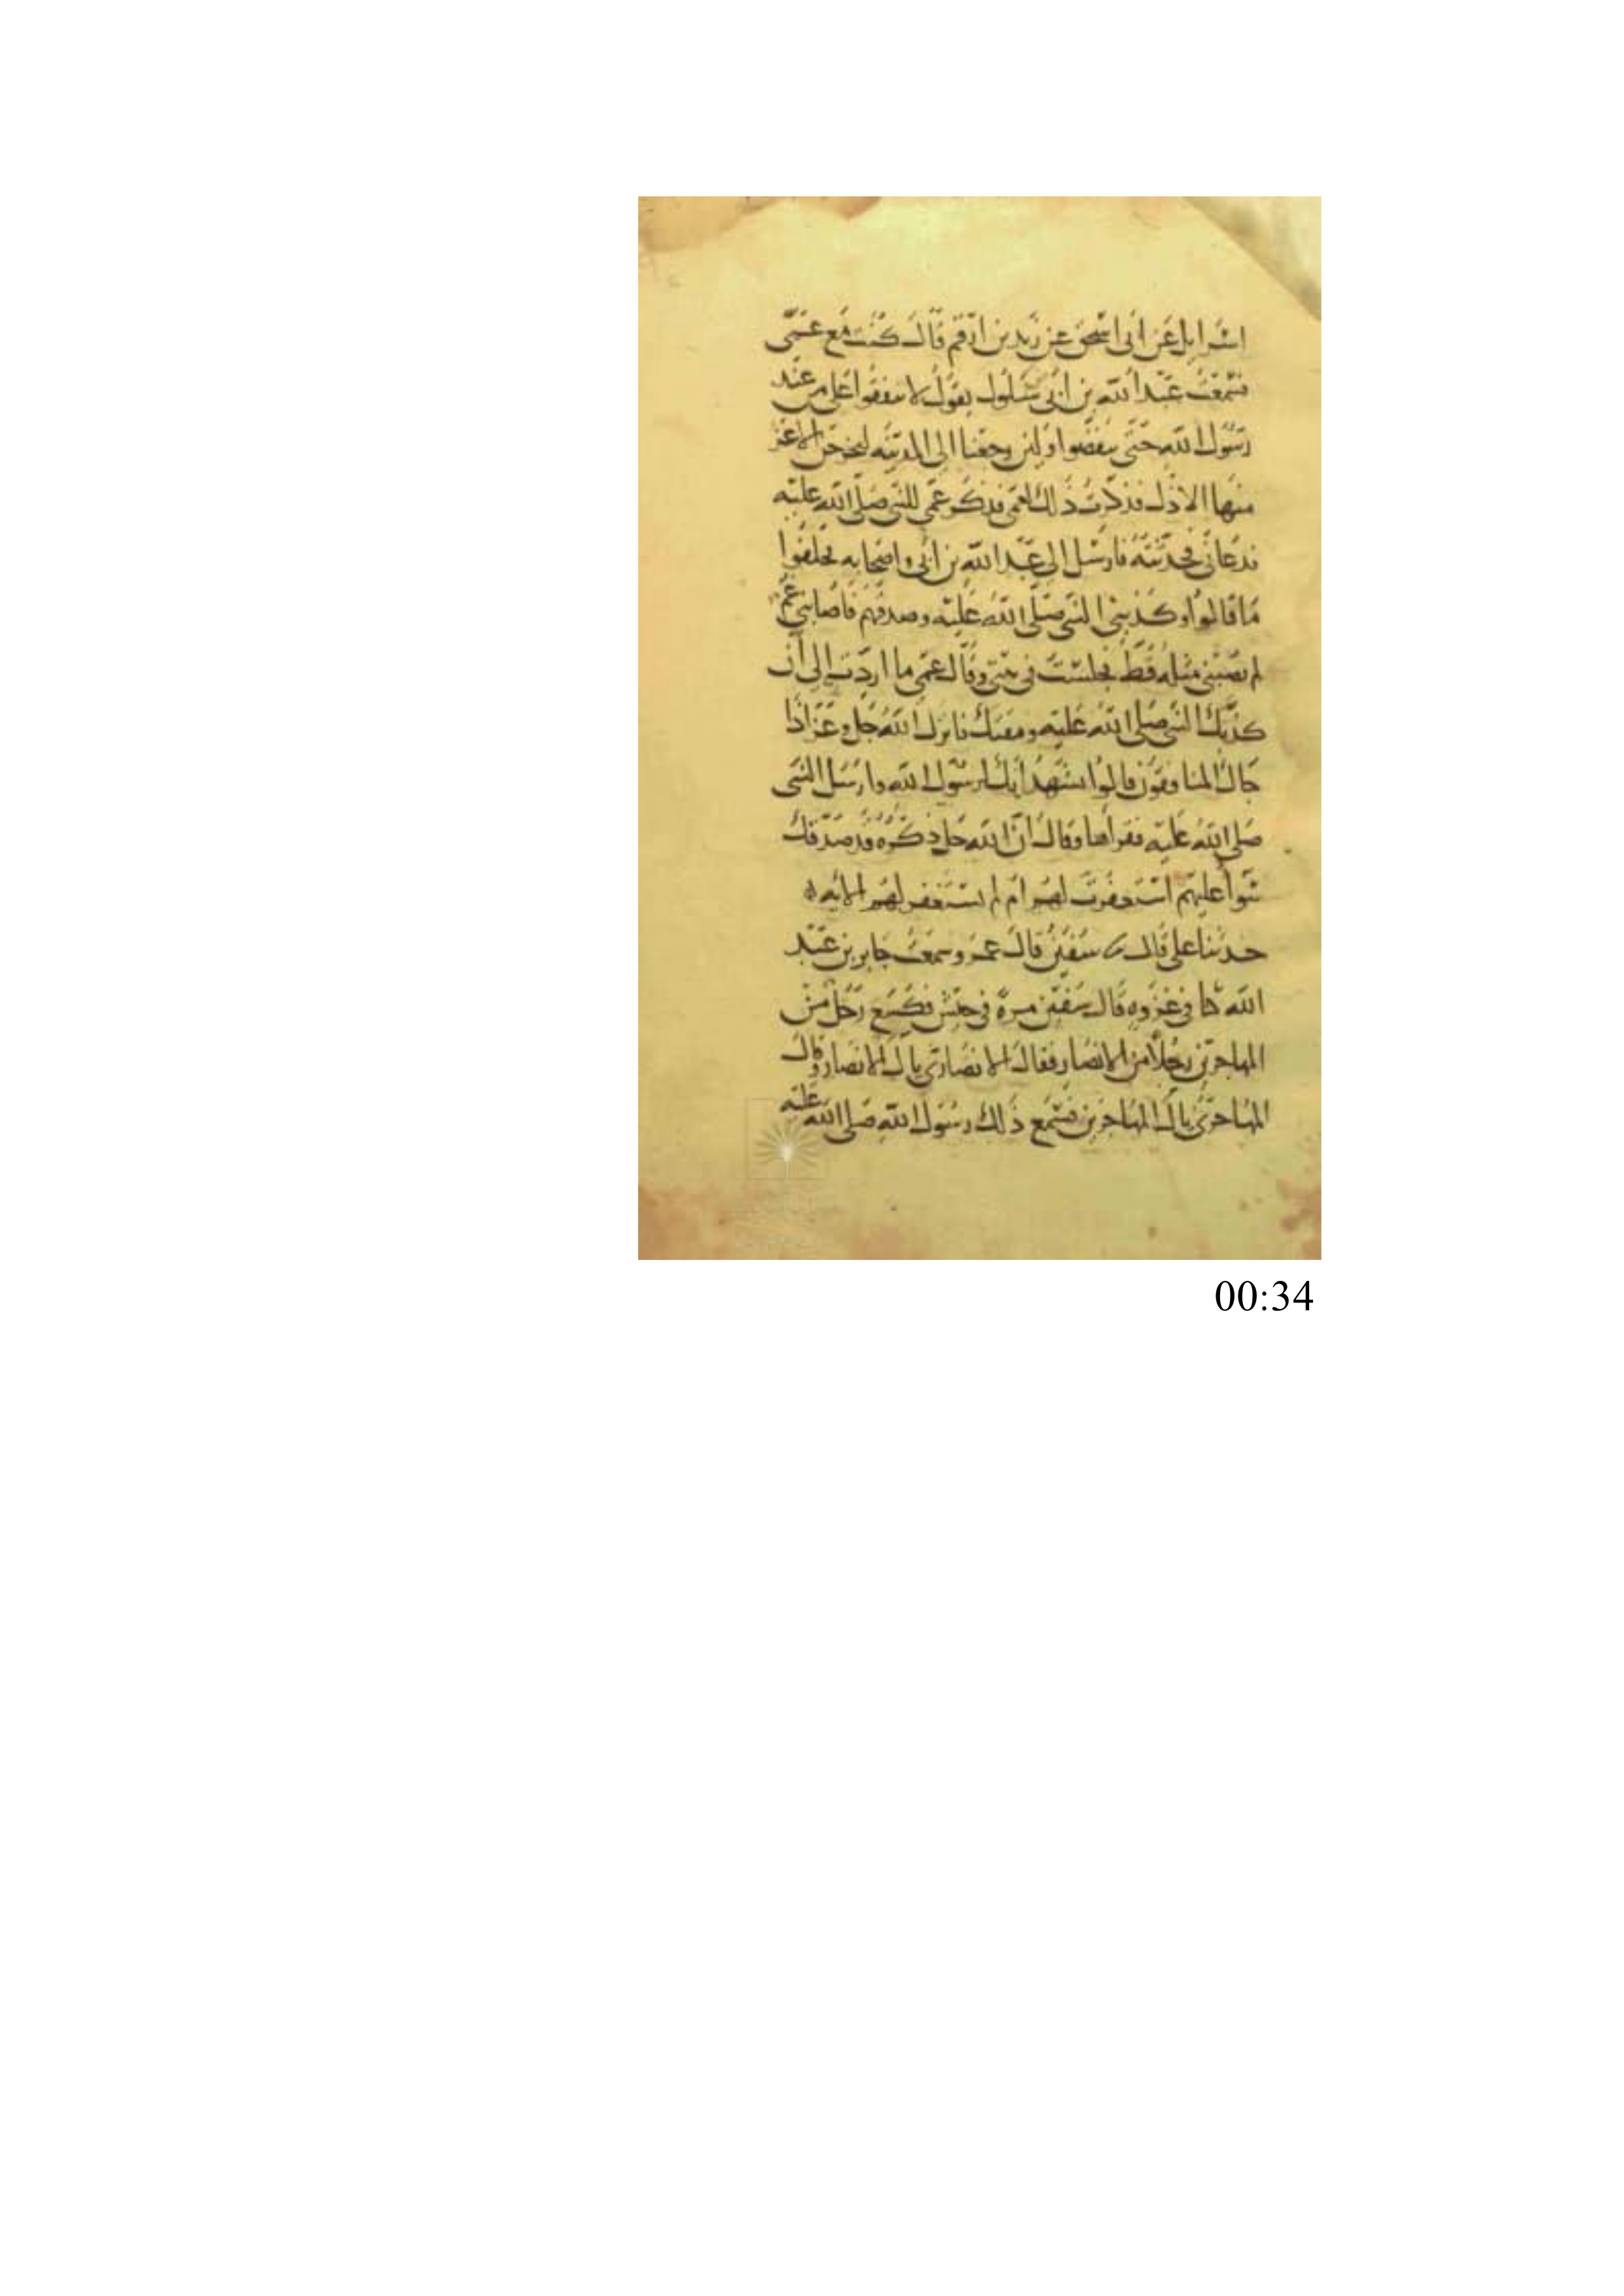 اسرايل عن ابى اسحق عن زيد بن ارقم قال كنت مع عمى
فسمعت عبد الله بن ابى سلول يقول لا تنفقوا على من عند
رسول الله حتى ينفضوا ولئن رجعنا الى المدينه ليخرجن الاعز
منها الاذل فذكرت ذلك لعمى فذكر عمى للنبى صلى الله عليه
فدعانى فحدثته فارسل الى عبد الله بن ابى واصحابه فحلفوا
ما قالوا وكذبنى النبى صلى الله عليه وصدقهم فاصابنى غم
لم يصبنى مثله قط فجلست فى بيتى وقال عمى ما اردت الى ان
كذبك النبى صلى الله عليه ومقتك فانزل الله جل وعز اذا
جاك المنافقون قالوا نشهد انك لرسول الله وارسل النبى
صلى الله عليه فقراها وقال ان الله جل ذكره قد صدقك
سوا عليهم استغفرت لهم ام لم تستغفر لهم الايه
حدثنا على قال سفين قال عمرو سمعت جابر بن عبد
الله كنا فى غزوه قال سفين مرة فى جيش فكسع رجل من
المهاجرين رجلا من الانصار فقال الانصارى يال الانصار وقال
المهاجرى يال المهاجرين فسمع ذلك رسول الله صلى الله عليه
00:34